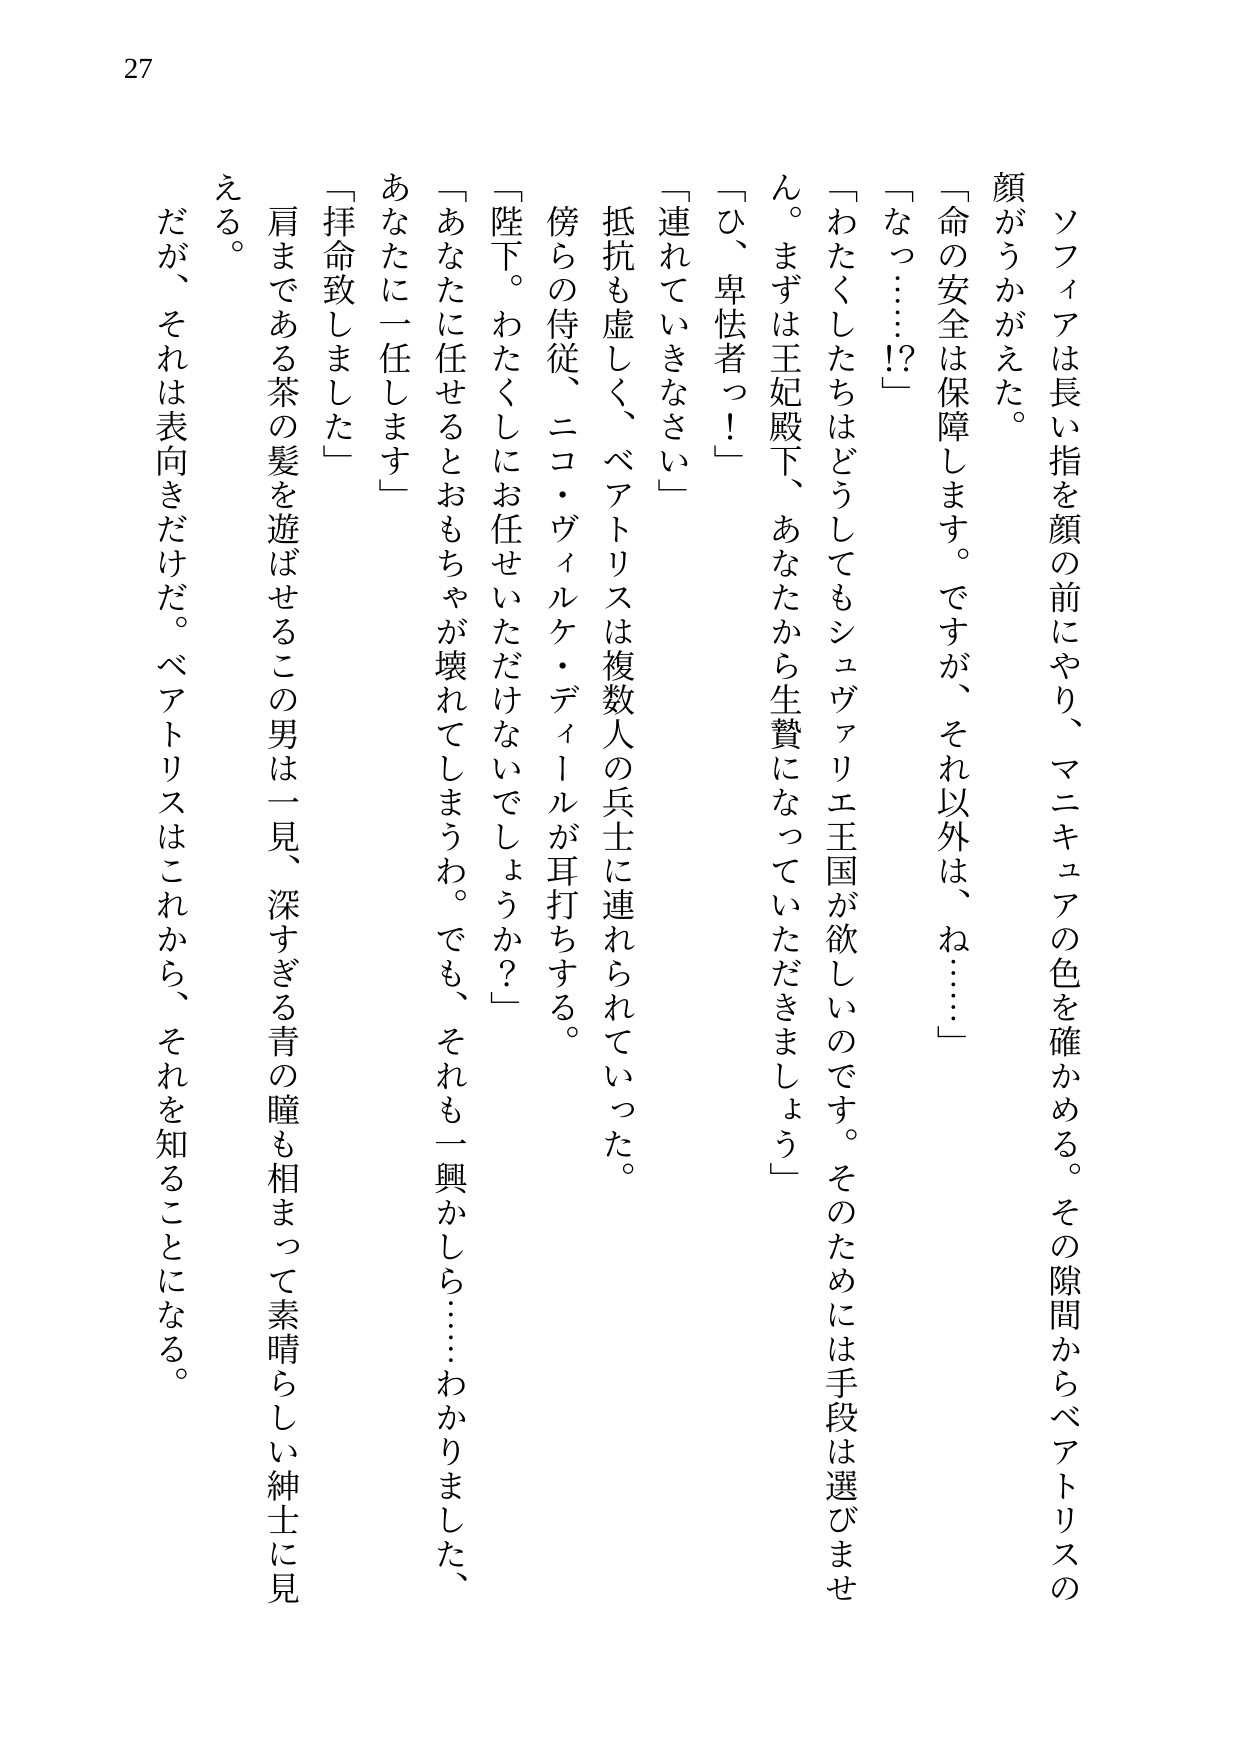 27
　ソフィアは長い指を顔の前にやり、マニキュアの色を確かめる。その隙間からベアトリスの
顔がうかがえた。
「命の安全は保障します。ですが、それ以外は、ね……」
「なっ……!?」
「わたくしたちはどうしてもシュヴァリエ王国が欲しいのです。そのためには手段は選びませ
ん。まずは王妃殿下、あなたから生贄になっていただきましょう」
「ひ、卑怯者っ！」
「連れていきなさい」
　抵抗も虚しく、ベアトリスは複数人の兵士に連れられていった。
　傍らの侍従、ニコ・ヴィルケ・ディールが耳打ちする。
「陛下。わたくしにお任せいただけないでしょうか？」
「あなたに任せるとおもちゃが壊れてしまうわ。でも、それも一興かしら……わかりました、
あなたに一任します」
「拝命致しました」
　肩まである茶の髪を遊ばせるこの男は一見、深すぎる青の瞳も相まって素晴らしい紳士に見
える。
　だが、それは表向きだけだ。ベアトリスはこれから、それを知ることになる。